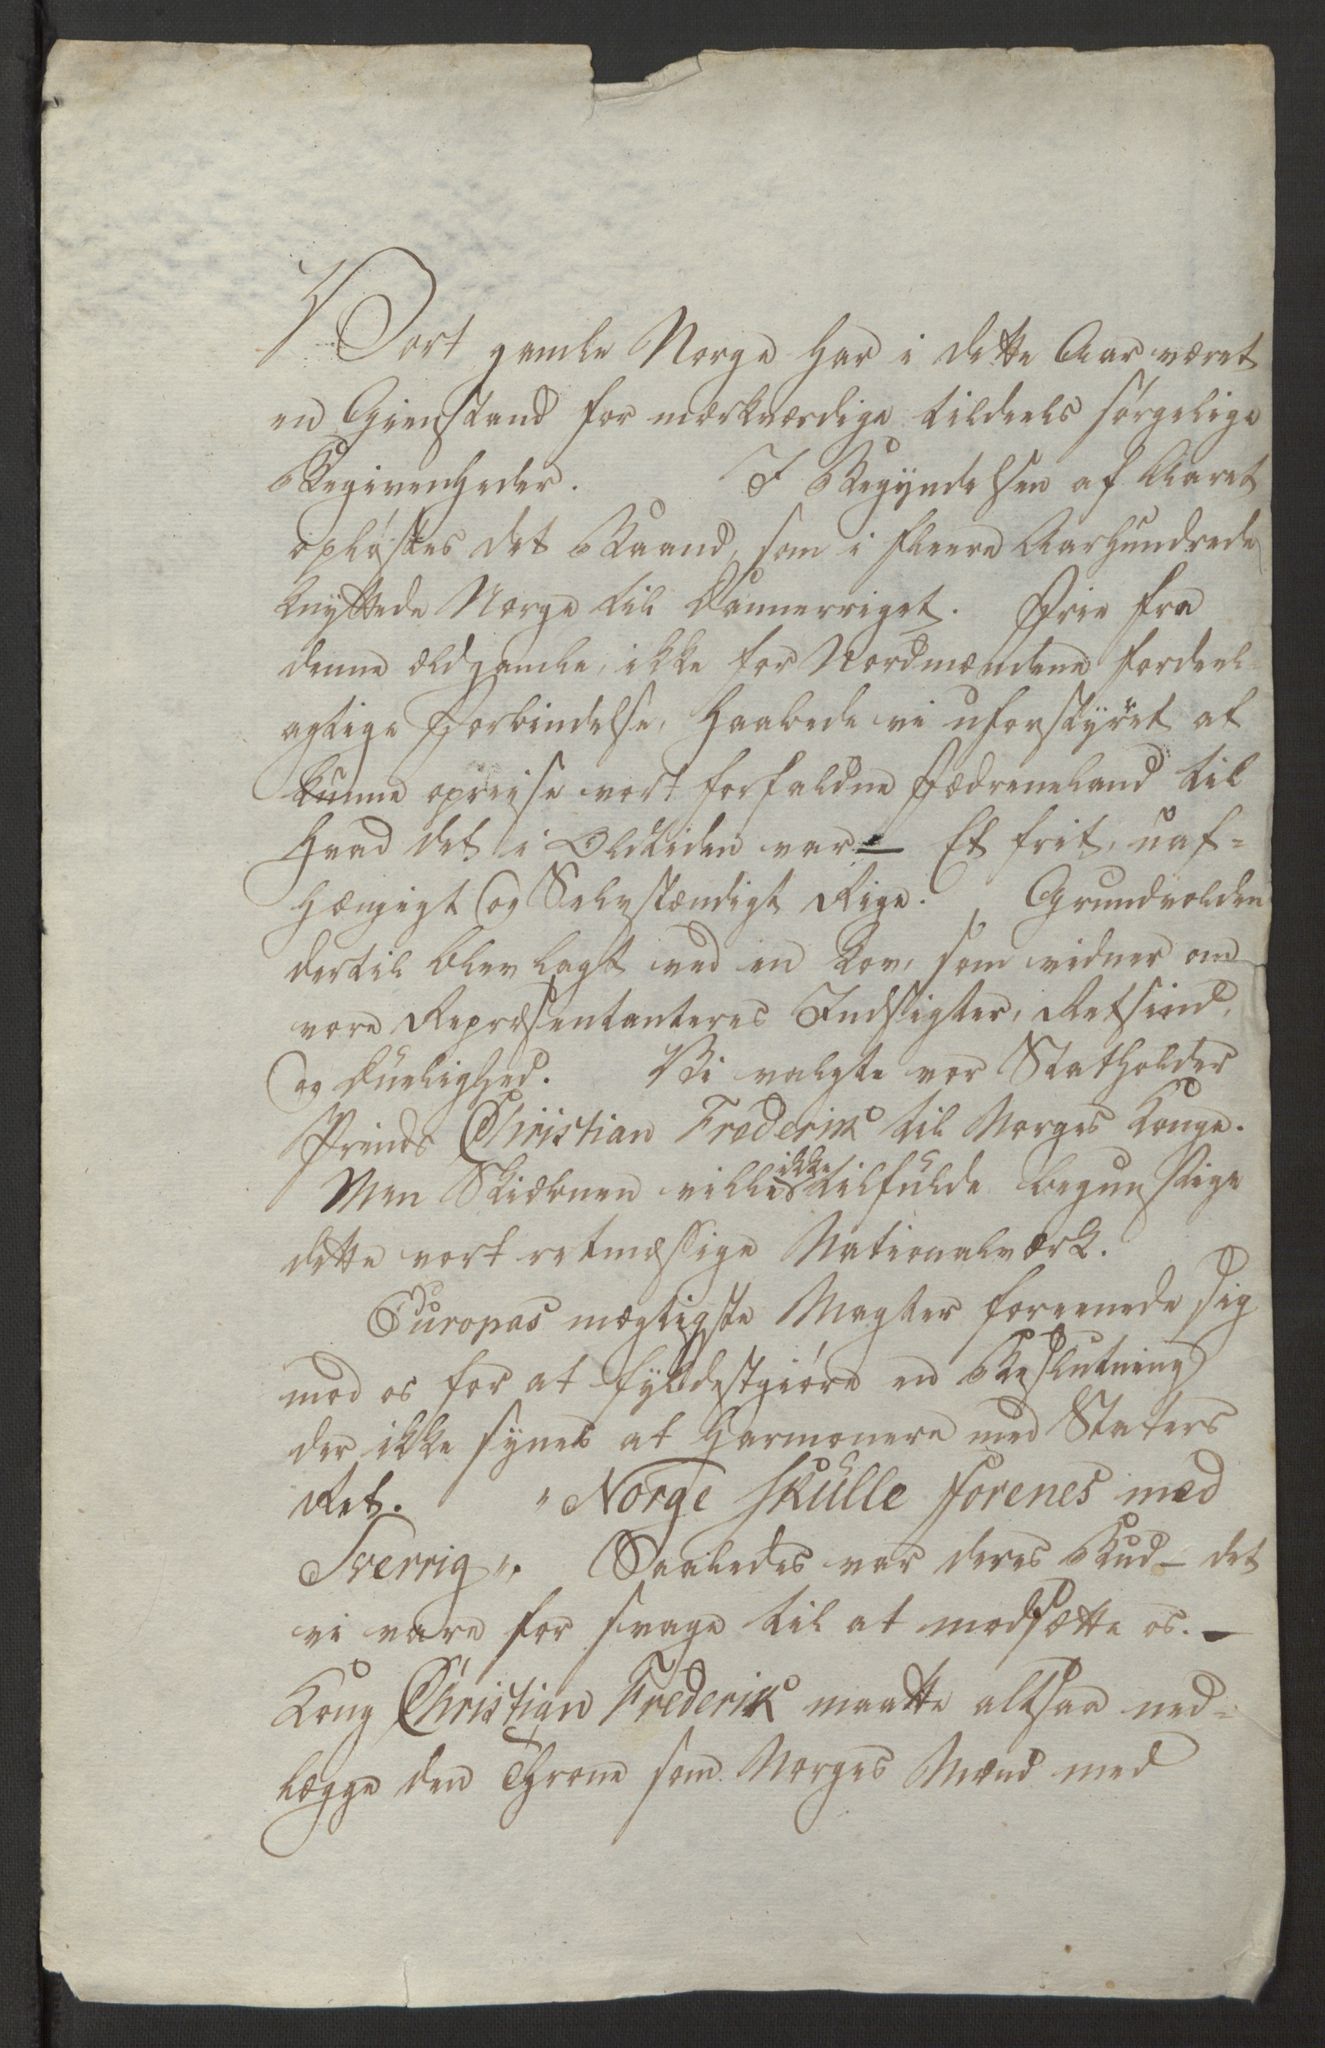 Vort gamle Norge har i dette Aar været
en Gienstand for mærkværdige tildeels sørgelige
Begivenheder. I Begyndelsen af Aaret
opløstes det Baand, som i fleere Aarhundrede
knyttede Norge til Dannerriget. Frie fra
denne ældgamle, ikke for Nordmændene fordeel
agtige Forbindelse, haabede vi uforstyrret at
kunne opreise vort forfaldne Fædreneland til
hvad det i Oldtiden var — Et frit, uaf=
hængigt og Selvstændigt Rige. Grundvolden
dertil blev lagt ved en Lov, som vidner om
vore Repræsentanteres Indsigter, Retsind,
og Duelighed. Vi valgte vor Statholder
Prinds Christian Frederik til Norges Konge.
Men Skiæbnen ville ikke tilfulde begunstige
dette vort retmæssige Nationalværk.
Europas mægtigste Magter foreenede sig
mod os for at fyldestgiøre en Beslutning
der ikke synes at harmonere med Staters
Ret. "Norge skulle forenes med
Sverrig". Saaledes var deres Bud — det
vi vare for svage til at modsætte os. —
Kong Christian Frederik maatte altsaa ned=
lægge den Throne som Norges Mænd med